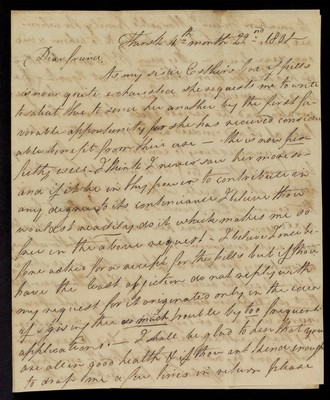 4th month 29th 1801
Dear friend
As my sister Esther's box of pills
is now quite exhausted she requests me to write
to ask thee to send her another by the first fa-
vorable opportunity for she has received consider-
able benefit from their use — she is now per-
fectly well I think I never saw her more so
and if it be in thy power to contribute in
any degree to its continuance I believe thou
wouldst readily do it which makes me so
free in the above request — I believe I once be-
fore asked for a receipt for the pills but if thou
have the least objection do not reply with
my request for it originated only in the
if giving thee so much trouble by too frequent
applications — I shall be glad to hear that you
are all in good health & if thou art
to drop me a few lines in return please